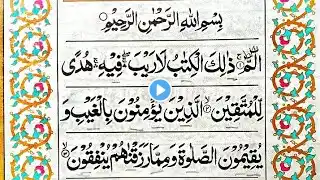 بِسْمِ اللهِ الرَّحْمٰنِ الرَّحِيْمِ
الٓمّٓ ذٰلِكَ الْكِتٰبُ لَارَيْبَ فِيْهِ هُدًى
لِّلْمُتَّقِيْنَ الَّذِيْنَ يُؤْمِنُوْنَ بِالْغَيْبِ وَ
يُقِيْمُوْنَ الصَّلٰوةَ وَمِمَّا رَزَقْنٰهُمْ يُنْفِقُوْنَ